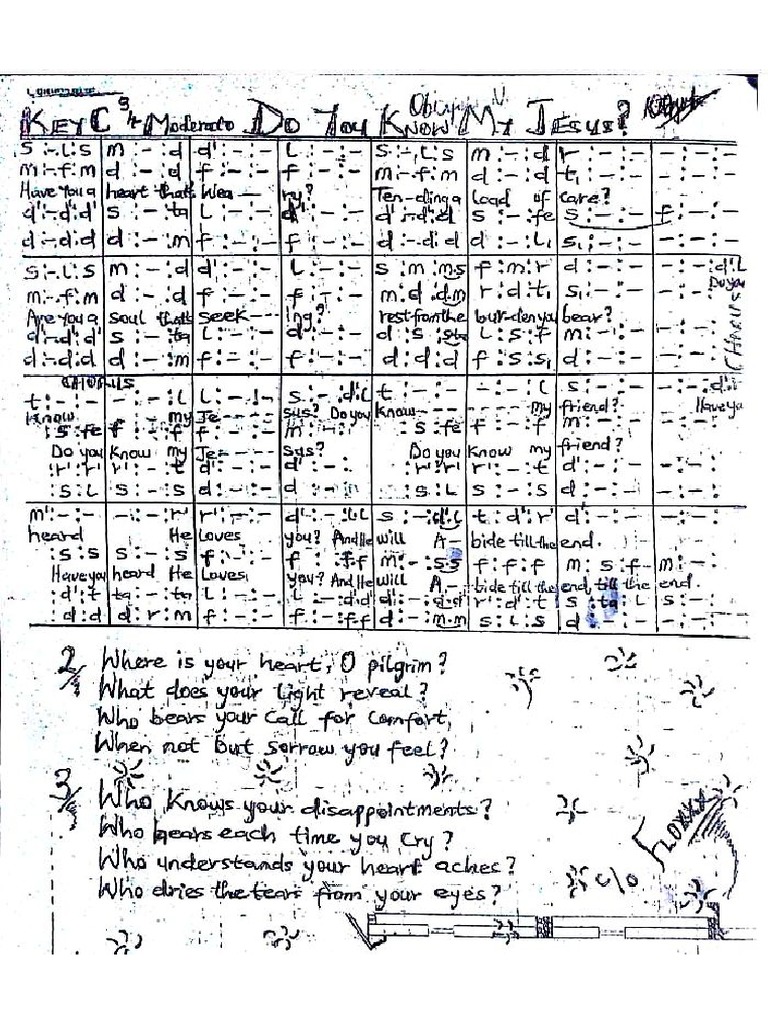 KEY C 3/4 Moderato DO YOU KNOW MY JESUS?
s :-.l:s m :-:d d' :-:- l :-:- s :-.l:s m :-:d r :-:- -:-:-
m :-.f:m d :-:d f :-:- f :-:- m :-.f:m d :-:d t₁ :-:- -:-:-
Have you a heart that's wea---- ry? Ten-ding a load of care?
d' :-.d':d' s :-:ta l :-:- d' :-:- d' :-.d':d' s :-:fe s :-:- f :-:-
d :-.d:d d :-:m f :-:- f :-:- d :-.d:d d :-:l₁ s₁ :-:- -:-:-
s :-.l:s m :-:d d' :-:- l :-:- s :m :m.s f :m :r d :-:- -:-:d'.l
m :-.f:m d :-:d f :-:- f :-:- m :d :d.m r :d :t₁ s₁ :-:- -:-:- Do you
Are you a soul that's seek---- ing? rest from the bur-den you bear?
d' :-.d':d' s :-:ta l :-:- d' :-:- d' :s :s.ta l :s :f m :-:- -:-:-
d :-.d:d d :-:m f :-:- f :-:- d :d :d f :s :s₁ d :-:- -:-:- CHORUS
CHORUS
t :-:- -:-:l l :-:- s :-:d'.l t :-:- -:-:l s :-:- -:-:d'
Know my Je------ sus? Do you know------ my friend? Have yo
:s :fe f :-:f f :-:- m :-:- :s :fe f :-:f m :-:- -:-:-
Do you know my Je------ sus? Do you know my friend?
:r' :r' r' :-:t d' :-:- d' :-:- :r' :r' r' :-:t d' :-:- -:-:-
:s :l s :-:s d :-:- d :-:- :s :l s :-:s d :-:- -:-:-
m' :-:- -:-:r' r' :-:- d' :-:l.l s :-:d'.l t :d' :r' d' :-:- -:-:-
heard He loves you? And He will A- bide till the end.
:s :s s :-:s f :-:- f :-:f.f m :-:s.s f :f :f m :s :f m :-:-
Have you heard He loves you? And He will A- bide till the end, till the end.
:d' :t ta :-:ta l :-:- l :-:d'.d' d' :-:d'.d' r' :d' :t s :ta :l s :-:-
:d :d d :r :m f :-:- f :-:f.f d :-:m.m s :l :s d :-:- -:-:-
2/ Where is your heart, O pilgrim?
What does your light reveal?
Who bears your call for comfort,
When not but sorrow you feel?
3/ Who knows your disappointments?
Who hears each time you cry?
Who understands your heart aches?
Who dries the tears from your eyes?
c/o Floxxx